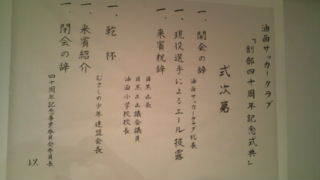 油面サッカークラブ
『創部四十周年記念式典』
式次第
一、開会の辞
油面サッカークラブ代表
一、現役選手によるエール披露
一、来賓祝辞
目黒区長
目黒区議会議員
油面小学校校長
一、乾杯
むさしの少年連盟会長
一、来賓紹介
一、閉会の辞
四十周年記念事業委員会委員長
以上